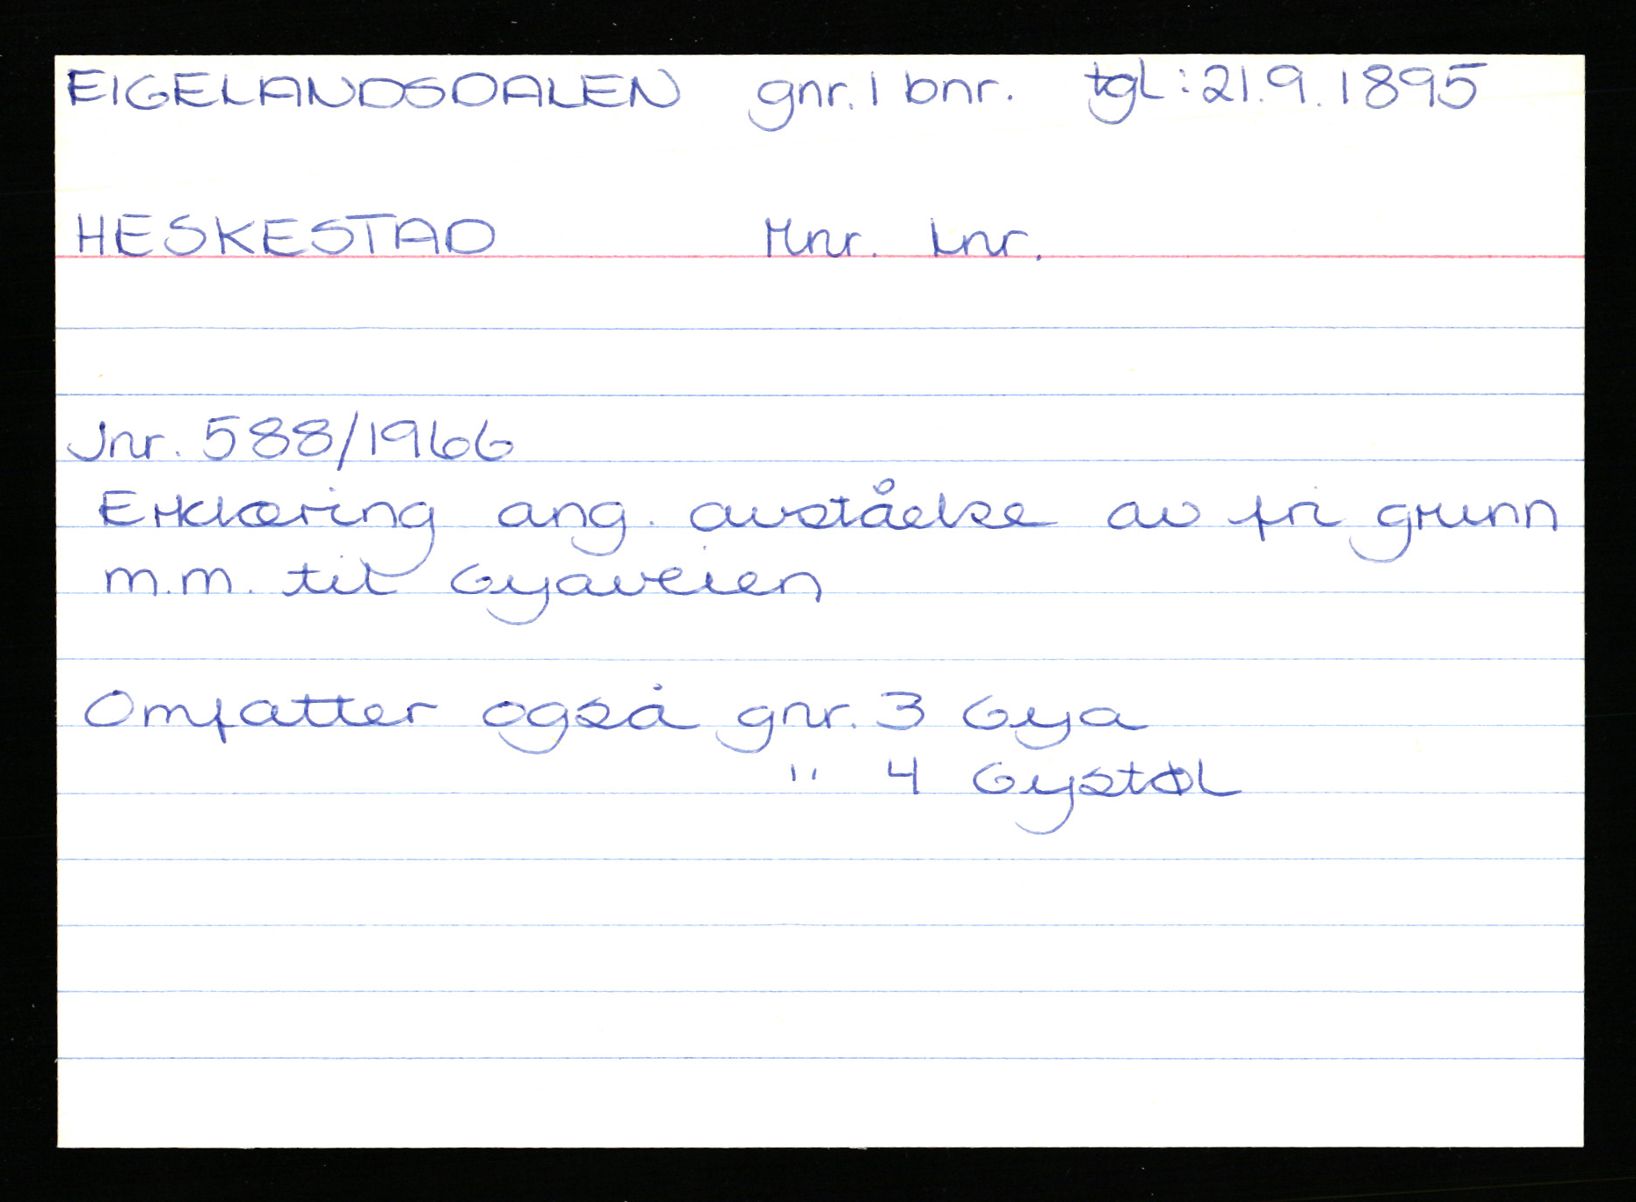 EIGELANDSDALEN gnr. 1 bnr. tgl: 21.9.1895
HESKESTAD Mnr. Lnr.
Jnr. 588/1966
Erklæring ang. avståelse av fri grunn
m.m. til Gyaveien
Omfatter også gnr. 3 Gya
" 4 Gystøl